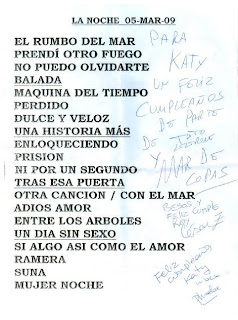 LA NOCHE 05-MAR-09
EL RUMBO DEL MAR
PRENDÍ OTRO FUEGO
NO PUEDO OLVIDARTE
BALADA
MAQUINA DEL TIEMPO
PERDIDO
DULCE Y VELOZ
UNA HISTORIA MÁS
ENLOQUECIENDO
PRISION
NI POR UN SEGUNDO
TRAS ESA PUERTA
OTRA CANCION / CON EL MAR
ADIOS AMOR
ENTRE LOS ARBOLES
UN DIA SIN SEXO
SI ALGO ASI COMO EL AMOR
RAMERA
SUNA
MUJER NOCHE
PARA
KATY
UN FELIZ
CUMPLEAÑOS
DE PARTE
DE
Y MAR DE
COPAS
BESOS Y
FELIZ CUMPLE
KATY
Feliz
cumpleaños
Katy